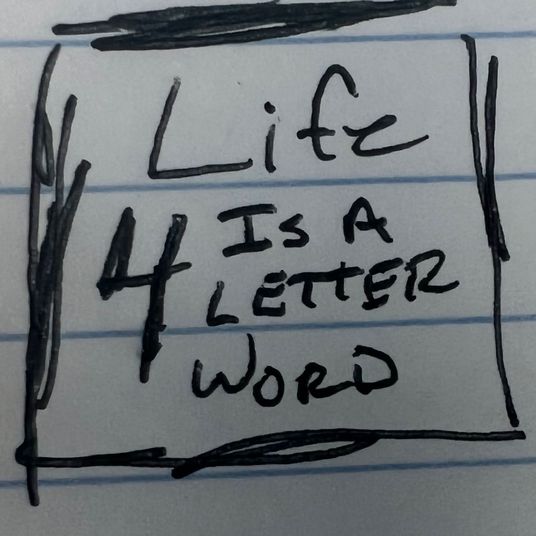 Life
Is A
4 LETTER
WORD